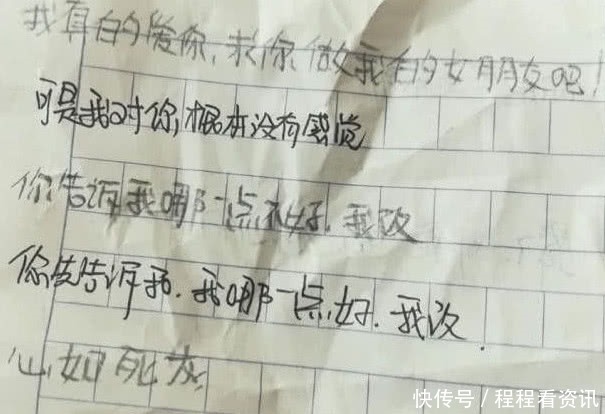 我真的爱你，求你做我的女朋友吧！
可是我对你，根本没有感觉
你告诉我哪一点不好，我改
你先告诉我．我哪一点好．我改．
心如死灰
快传号／程程看资讯